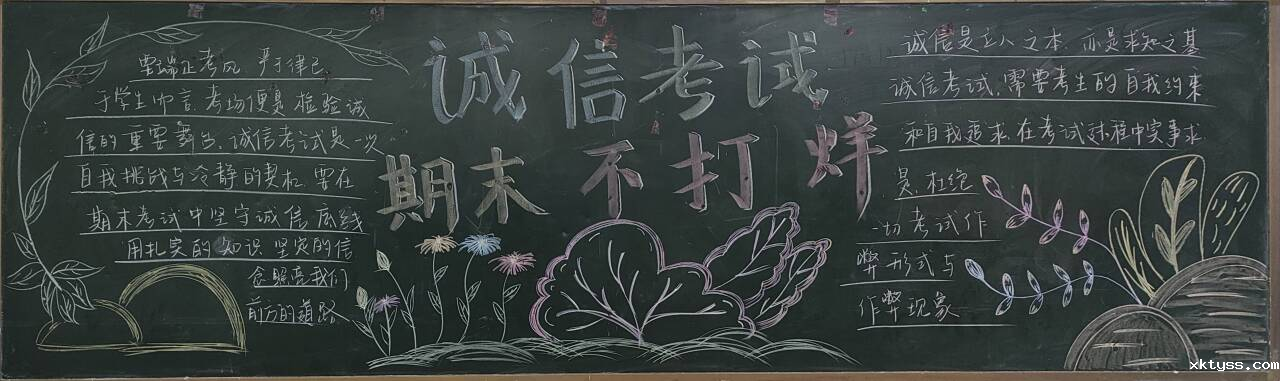 诚信考试
期末不打烊
要端正考风，严于律己，
于学生而言，考场便是检验诚
信的重要舞台，诚信考试是一次
自我挑战与冷静的契机，要在
期末考试中坚守诚信底线
用扎实的知识、坚定的信
念照亮我们
前方的道路
诚信是立人之本，亦是求知之基
诚信考试，需要考生的自我约束
和自我追求，在考试过程中实事求
是，杜绝
一切考试作
弊形式与
作弊现象
xktyss.com